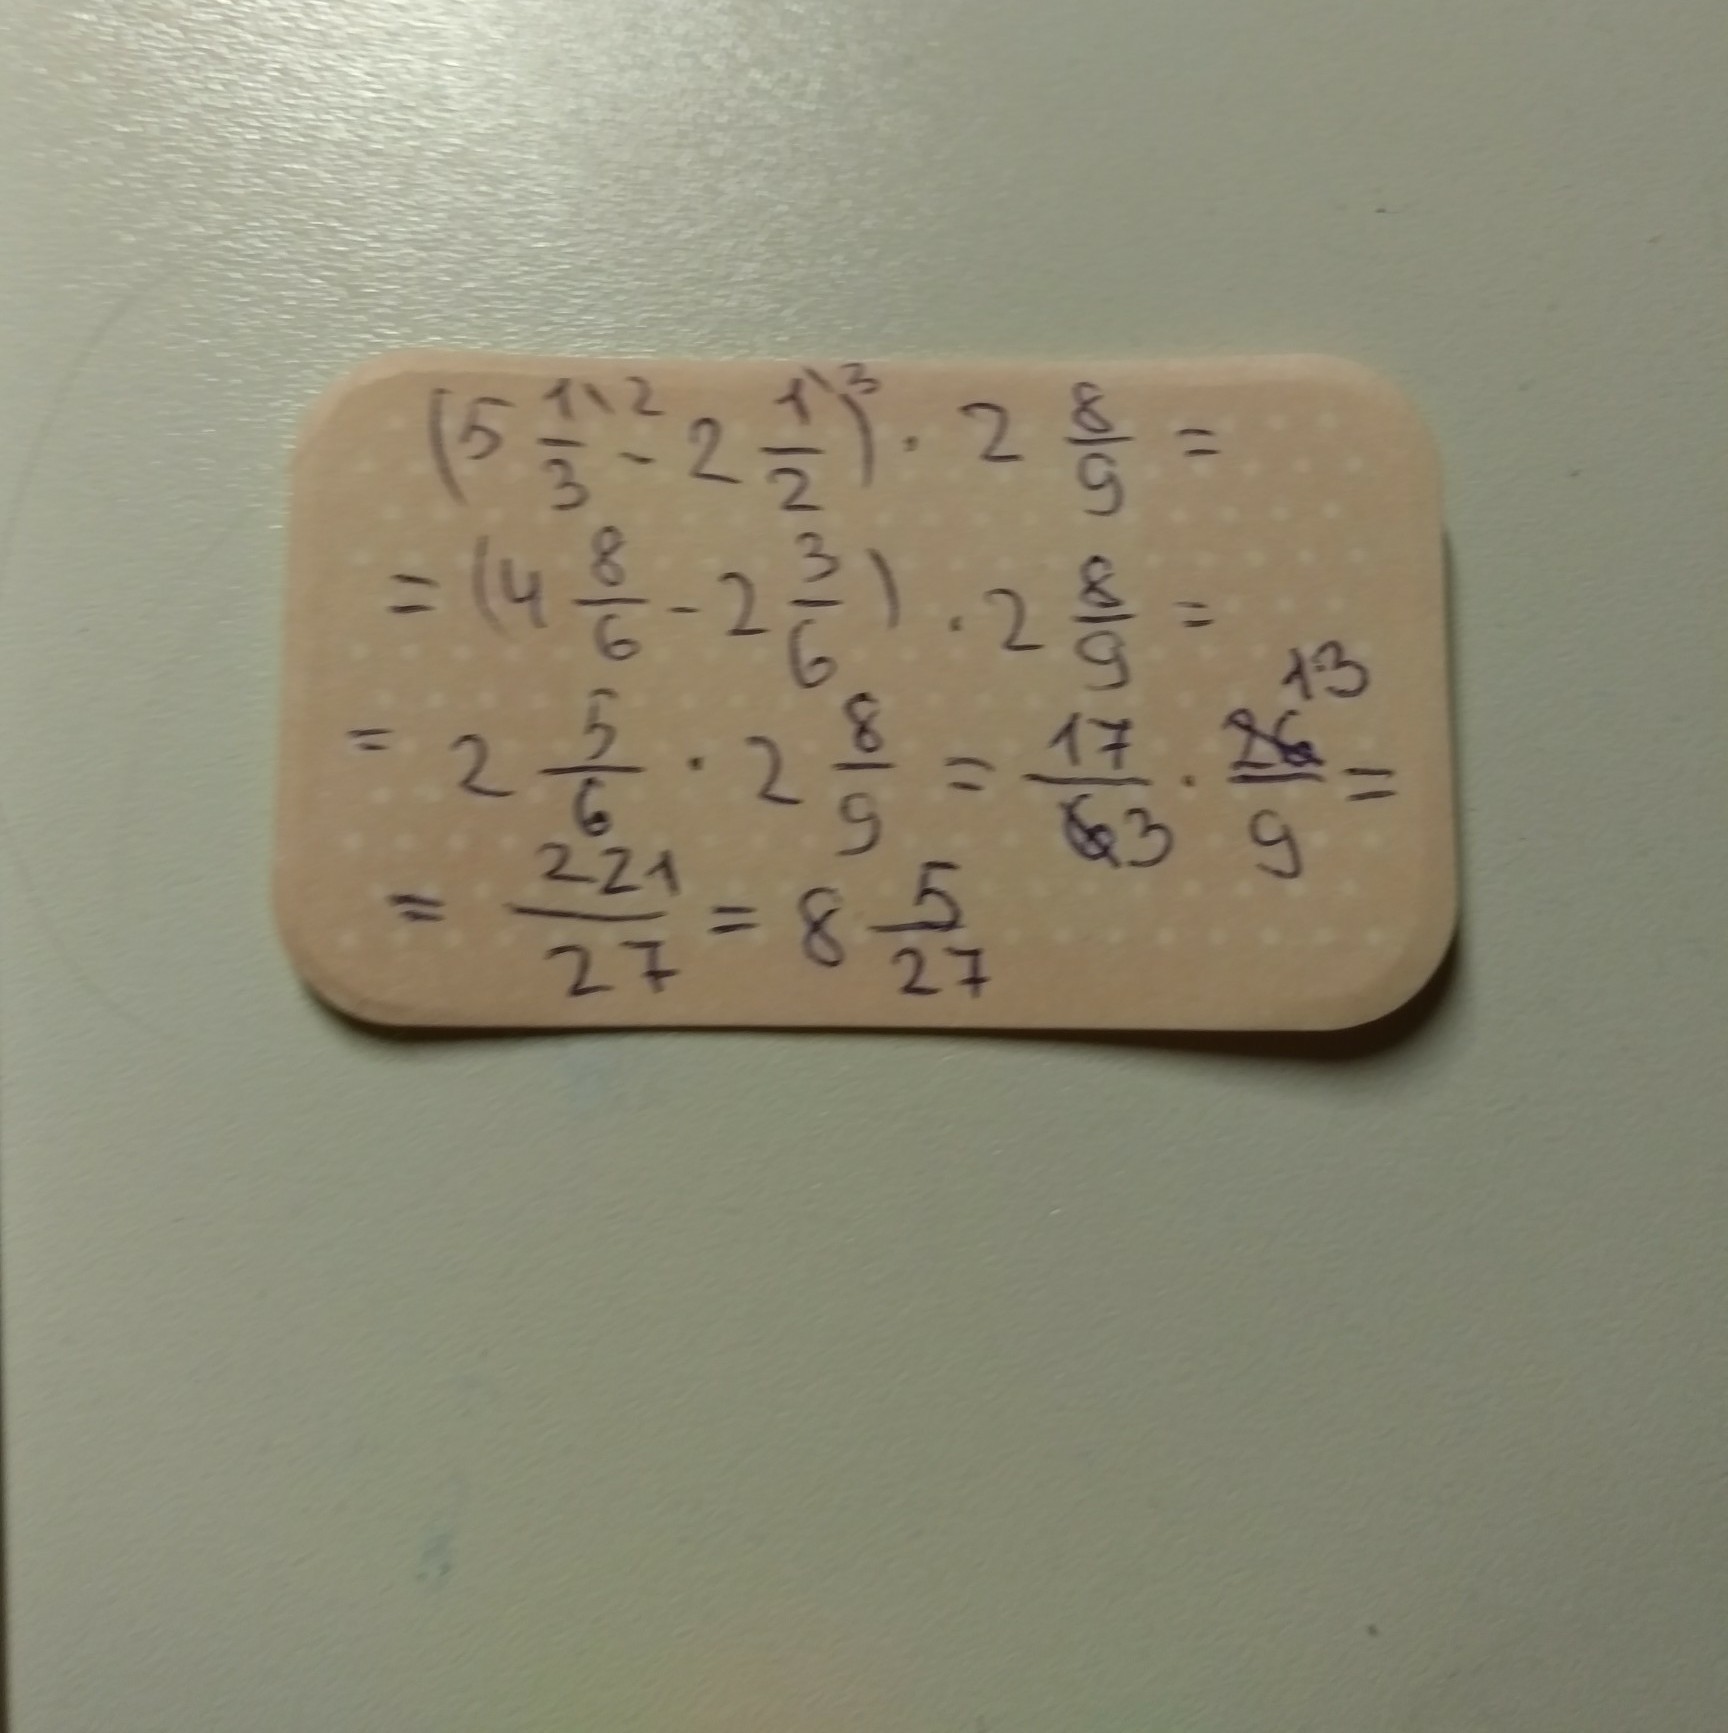 (5 1\2/3 - 2 1\3/2) · 2 8/9 =
= (4 8/6 - 2 3/6) · 2 8/9 =
= 2 5/6 · 2 8/9 = 17/6 3 · 26 13/9 =
= 221/27 = 8 5/27